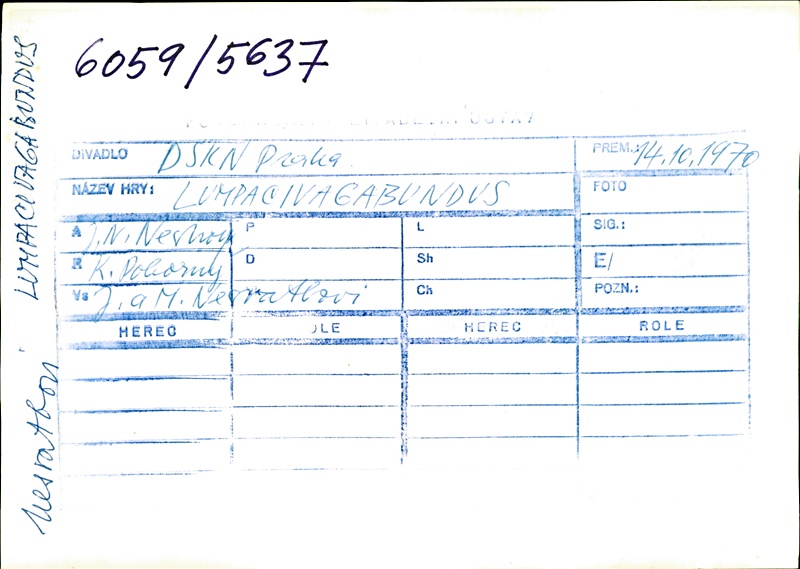 6059/5637
DIVADLO DSKN Praha
PREM.: 14.10.1970
NÁZEV HRY: LUMPACIVAGABUNDUS
FOTO
A J.N. Nestroy P L SIG.:
R K. Pokorný D Sh E/
Vs J. a M. Nesvatbovi Ch POZN.:
HEREC HEREC ROLE
LUMPACIVAGABUNDUS